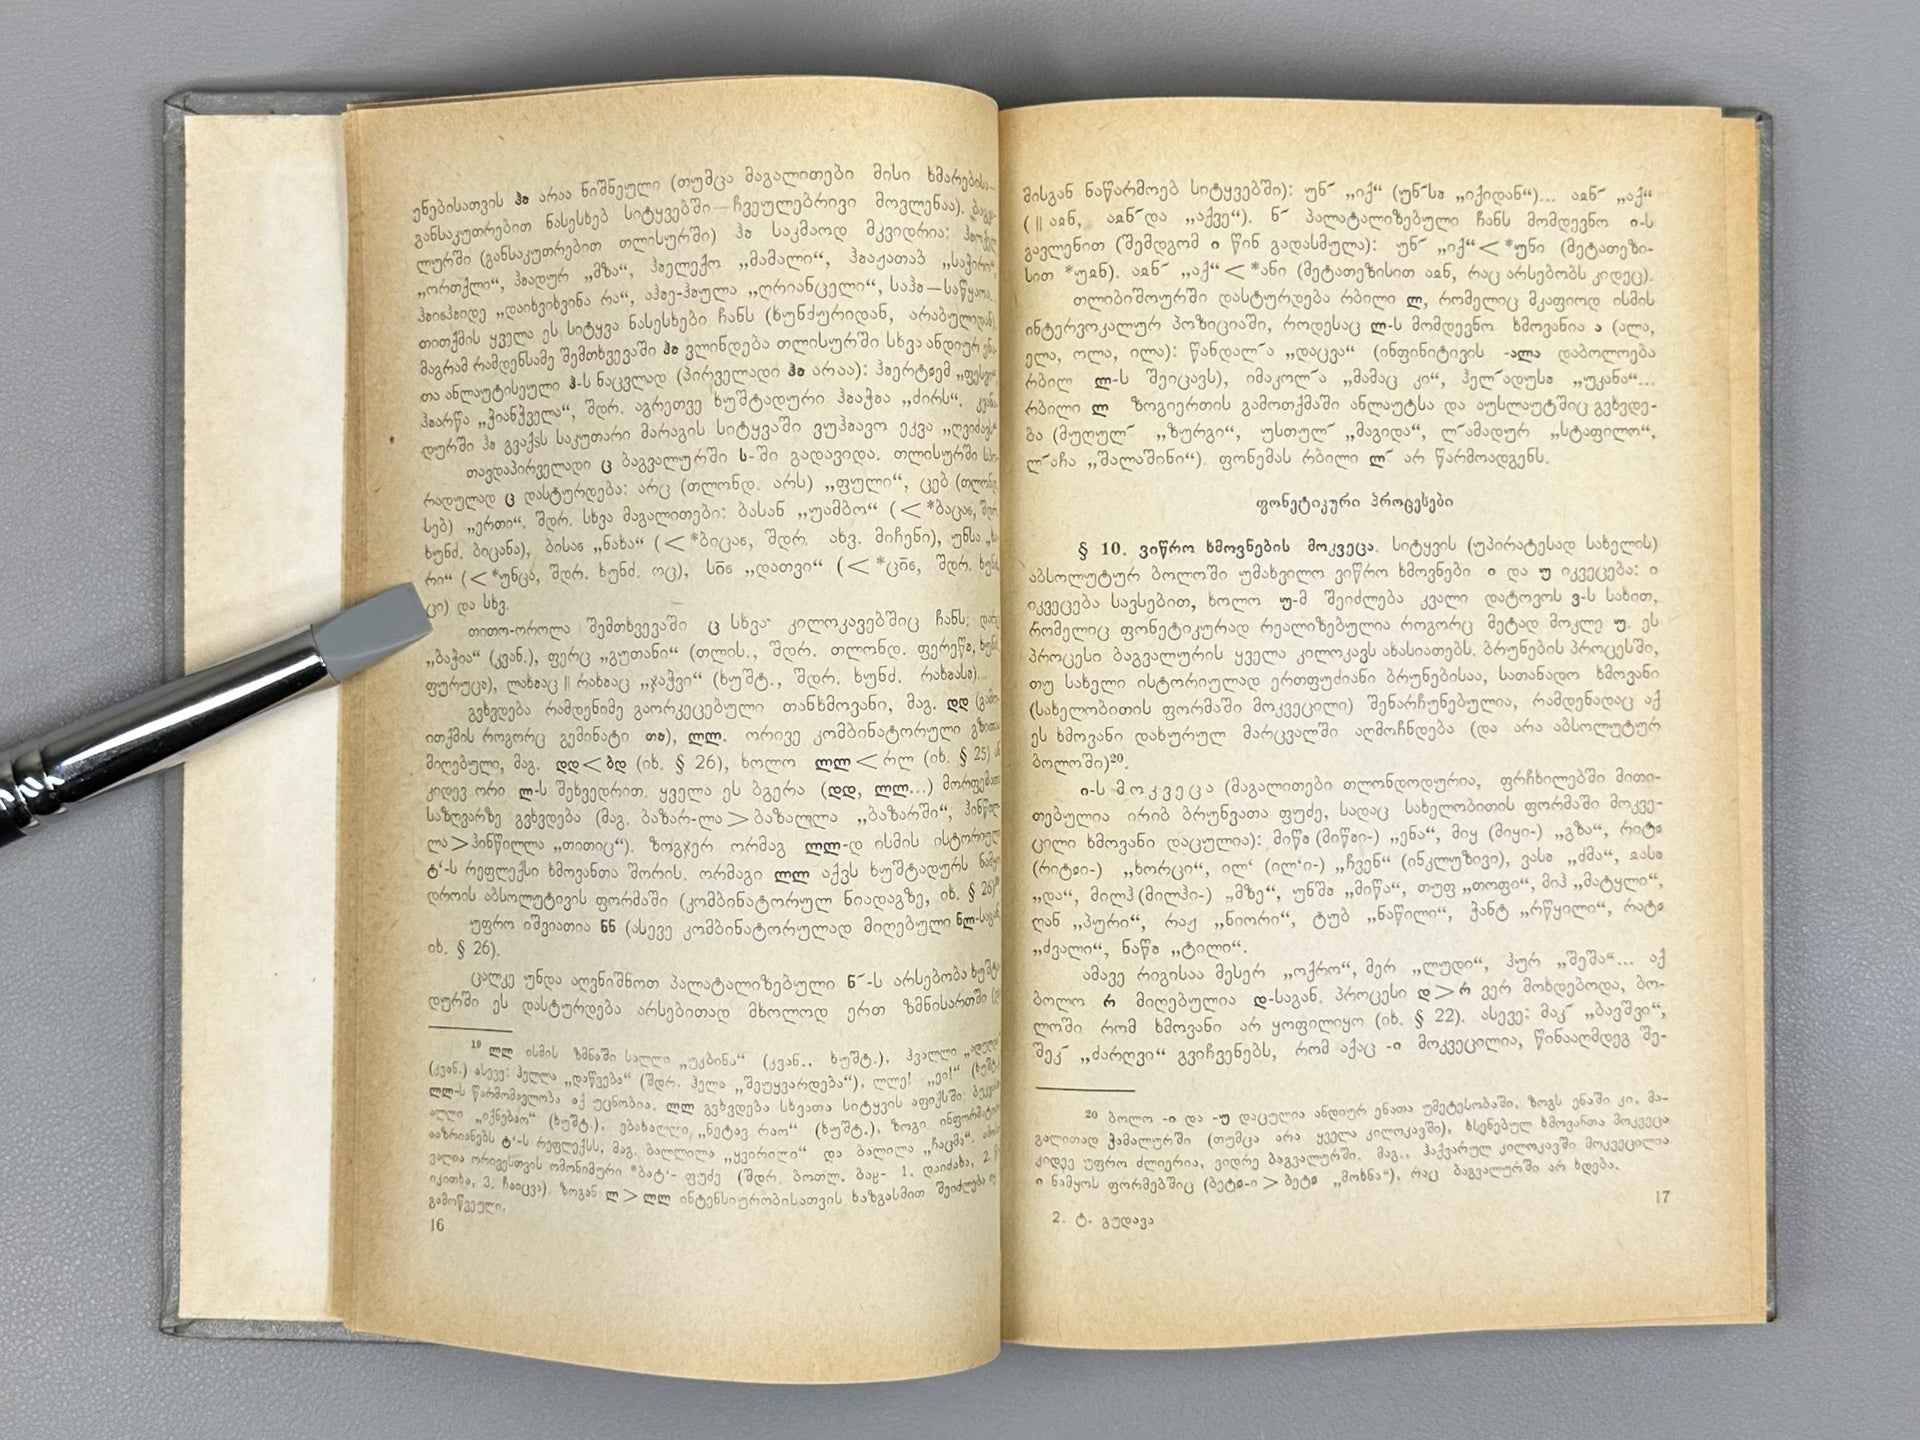 ენებისათვის ჰა არაა ნიშნეული (თუმცა მაგალითები მისი ხმარებისა—
განსაკუთრებით ნასესხებ სიტყვებში—ჩვეულებრივი მოვლენაა).
ლურში (განსაკუთრებით თლისურში) საკმაოდ მკვიდრია:
„ორთქლი“, „მზა“, „მამალი“, „საჭირო“,
„დაიხვიხვინა რა“, „ღრიანცელი“,
თითქმის ყველა ეს სიტყვა ნასესხები ჩანს (ხუნძურიდან, არაბულიდან),
მაგრამ რამდენსამე შემთხვევაში ვლინდება თლისურში სხვა ანდიურ
თა ანლაუტისეული ჰ-ს ნაცვლად (პირველადი არაა):
„ჭიანჭველა“, შდრ. აგრეთვე ხუშტადური „ძირს“.
დურში გვაქვს საკუთარი მარაგის სიტყვაში ეკვა „ღვიძავს“
თავდაპირველადი ც ბაგვალურში ს-ში გადავიდა. თლისურში
რადულად ც დასტურდება: არც (თლონდ. არს) „ფული“, ცებ (თლონდ.
სებ) „ერთი“. შდრ. სხვა მაგალითები: ბასან „უამბო“
ხუნძ. ბიცანა), „ნახა“ შდრ. ახვ. მიჩენი), უნსა
რი“ (<*უნცა, შდრ. ხუნძ. ოც), „დათვი“ შდრ. ხუნძ.
ცი) და სხვ.
თითო-ოროლა შემთხვევაში ც სხვა კილოკავებშიც ჩანს:
„ბაჭია“ (კვან.), ფერც „გუთანი“ (თლის., შდრ. თლონდ.
ფურუცა), „ჯაჭვი“ (ხუშტ., შდრ. ხუნძ.
გვხვდება რამდენიმე გაორკეცებული თანხმოვანი, მაგ. დდ
ითქმის როგორც გემინატი ლლ. ორივე კომბინატორული გზითაა
მიღებული, მაგ. დდ<ბდ (იხ. § 26), ხოლო ლლ<რლ (იხ. § 25) ან
კიდევ ორი ლ-ს შეხვედრით. ყველა ეს ბგერა (დდ, ლლ...) მორფემათა
საზღვარზე გვხვდება (მაგ. ბაზარ-ლა>ბაზალლა „ბაზარში“,
ლა>ჰინწილლა „თითიც“). ზოგჯერ ორმაგ ლლ-დ ისმის ისტორიული
ტ‘-ს რეფლექსი ხმოვანთა შორის. ორმაგი ლლ აქვს ხუშტადურს ნამყო
დროის აბსოლუტივის ფორმაში (კომბინატორულ ნიადაგზე, იხ. § 26)¹⁹
უფრო იშვიათია ნნ (ასევე კომბინატორულად მიღებული ნლ-საგან,
იხ. § 26).
ცალკე უნდა აღვნიშნოთ პალატალიზებული ნ´-ს არსებობა
დურში ეს დასტურდება არსებითად მხოლოდ ერთ ზმნისართში
¹⁹ ლლ ისმის ზმნაში სალლი „უკბინა“ (კვან., ხუშტ.), ჰვალლი
(კვან.) ასევე: ჰელლა „დაწვება“ (შდრ. ჰელა „შეუყვარდება“), ლლე! „ეი!“
ლლ-ს წარმომავლობა აქ უცნობია. ლლ გვხვდება სხვათა სიტყვის აფიქსში:
ალლი „იქნებაო“ (ხუშტ.), ებახალლი „ნეტავ რაო“ (ხუშტ.). ზოგი ინფორმატორი
ააზრიანებს ტ‘-ს რეფლექსს, მაგ. ბალლილა „ყვირილი“ და ბალილა „ჩაცმა“.
ვალია ორივესთვის ომონიმური *ბატ‘- ფუძე (შდრ. ბოთლ. 1. დაიძახა, 2.
იკითხა, 3. ჩააცვა). ზოგან ლ>ლლ ინტენსიურობისათვის ხაზგასმით შეიძლება
გამოწვეული.
16
მისგან ნაწარმოებ სიტყვებში): უნ´ „იქ“ „იქიდან“)... „აქ“
„აქვე“). ნ´ პალატალიზებული ჩანს მომდევნო ი-ს
გავლენით (შემდგომ ი წინ გადასმულა): უნ´ „იქ“<*უნი (მეტათეზი-
სით „აქ“<*ანი (მეტათეზისით რაც არსებობს კიდეც).
თლიბიშოურში დასტურდება რბილი ლ, რომელიც მკაფიოდ ისმის
ინტერვოკალურ პოზიციაში, როდესაც ლ-ს მომდევნო ხმოვანია ა (ალა,
ელა, ოლა, ილა): წანდალ´ა „დაცვა“ (ინფინიტივის -ალა დაბოლოება
რბილ ლ-ს შეიცავს), იმაკოლ´ა „მამაც კი“, „უკანა“...
რბილი ლ ზოგიერთის გამოთქმაში ანლაუტსა და აუსლაუტშიც გვხვდე-
ბა (მუღულ´ „ზურგი“, უსთულ´ „მაგიდა“, ლ´ამადურ „სტაფილო“,
ლ´აჩა „შალაშინი“). ფონემას რბილი ლ´ არ წარმოადგენს.
ფონეტიკური პროცესები
§ 10. ვიწრო ხმოვნების მოკვეცა. სიტყვის (უპირატესად სახელის)
აბსოლუტურ ბოლოში უმახვილო ვიწრო ხმოვნები ი და უ იკვეცება: ი
იკვეცება სავსებით, ხოლო უ-მ შეიძლება კვალი დატოვოს ვ-ს სახით,
რომელიც ფონეტიკურად რეალიზებულია როგორც მეტად მოკლე უ. ეს
პროცესი ბაგვალურის ყველა კილოკავს ახასიათებს. ბრუნების პროცესში,
თუ სახელი ისტორიულად ერთფუძიანი ბრუნებისაა, სათანადო ხმოვანი
(სახელობითის ფორმაში მოკვეცილი) შენარჩუნებულია, რამდენადაც აქ
ეს ხმოვანი დახურულ მარცვალში აღმოჩნდება (და არა აბსოლუტურ
ბოლოში)²⁰.
ი-ს მოკვეცა (მაგალითები თლონდოდურია, ფრჩხილებში მითი-
თებულია ირიბ ბრუნვათა ფუძე, სადაც სახელობითის ფორმაში მოკვე-
ცილი ხმოვანი დაცულია): „ენა“, მიყ (მიყი-) „გზა“,
„ხორცი“, ილ‘ (ილ‘ი-) „ჩვენ“ (ინკლუზივი), „ძმა“,
„და“, მილჰ (მილჰი-) „მზე“, „მიწა“, თუფ „თოფი“, მიჰ „მატყლი“,
ღან „პური“, რაჟ „ნიორი“, ტუბ „ნაწილი“, ჭანტ „რწყილი“,
„ძვალი“, „ტილი“.
ამავე რიგისაა მესერ „ოქრო“, მერ „ლუდი“, ჰურ „შეშა“... აქ
ბოლო რ მიღებულია დ-საგან. პროცესი დ>რ ვერ მოხდებოდა, ბო-
ლოში რომ ხმოვანი არ ყოფილიყო (იხ. § 22). ასევე: მაკ´ „ბავშვი“,
შეკ´ „ძარღვი“ გვიჩვენებს, რომ აქაც -ი მოკვეცილია, წინააღმდეგ შე-
²⁰ ბოლო -ი და -უ დაცულია ანდიურ ენათა უმეტესობაში. ზოგს ენაში კი, მა-
გალითად ჭამალურში (თუმცა არა ყველა კილოკავში), ხსენებულ ხმოვანთა მოკვეცა
კიდევ უფრო ძლიერია, ვიდრე ბაგვალურში. მაგ., ჰაქვარულ კილოკავში მოკვეცილია
ი ნამყოს ფორმებშიც „მოხნა“), რაც ბაგვალურში არ ხდება.
17
2. ტ. გუდავა